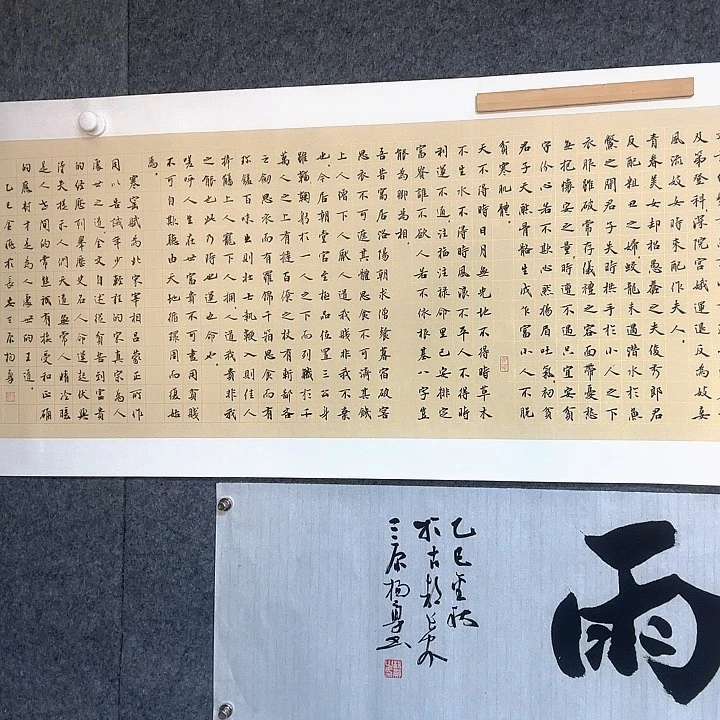 及第登科深院宫娥運退反為妓妾
風流妓女時来配作夫人.
青春美女却招愚蠢之夫俊秀郎君
反配粗丑之婦蛟龍未遇潜水於魚
鱉之間君子失時拱手於小人之下
衣服雖破常存儀禮之容面帶憂愁
每抱懷安之量時遭不遇只宜安貧
守份心若不欺必然揚眉吐氣初貧
君子天然骨骼生成乍富小人不脱
貧寒肌體.
天不得時日月無光地不得時草木
不生水不得時風浪不平人不得時
利運不通注福注禄命里已安排定
富貴誰不欲人若不依根基八字豈
能為卿為相.
吾昔寓居洛陽朝求僧餐暮宿破窑
思衣不可遮其體思食不可濟其饑
上人憎下人厭人道我賤非我不棄
也今居朝堂官至極品位置三公身
雖鞠躬於一人之下而列職於千
萬人之上有撻百僚之杖有斬鄙吝
之劍思衣而有羅錦千箱思食而有
珍饈百味出則壮士執鞭入則佳人
捧觴上人寵下人擁人道我貴非我
之能也此乃時也運也命也.
嗟呼人生在世富貴不可盡用貧賤
不可自欺聽由天地循環周而復始
焉.
寒窑賦為北宋宰相吕蒙正所作
用以告誡年少輕狂的宋真宗為人
處世之道全文自述從貧苦到富貴
的经歷列舉歷史名人命運起伏與
提示人們天道無常人情冷暖
是人世間的常態祇有接受和正确
的應对才是為人處世的王道.
乙巳金秋於長安三原楊
雨
乙巳金秋
於古都長安
三原楊